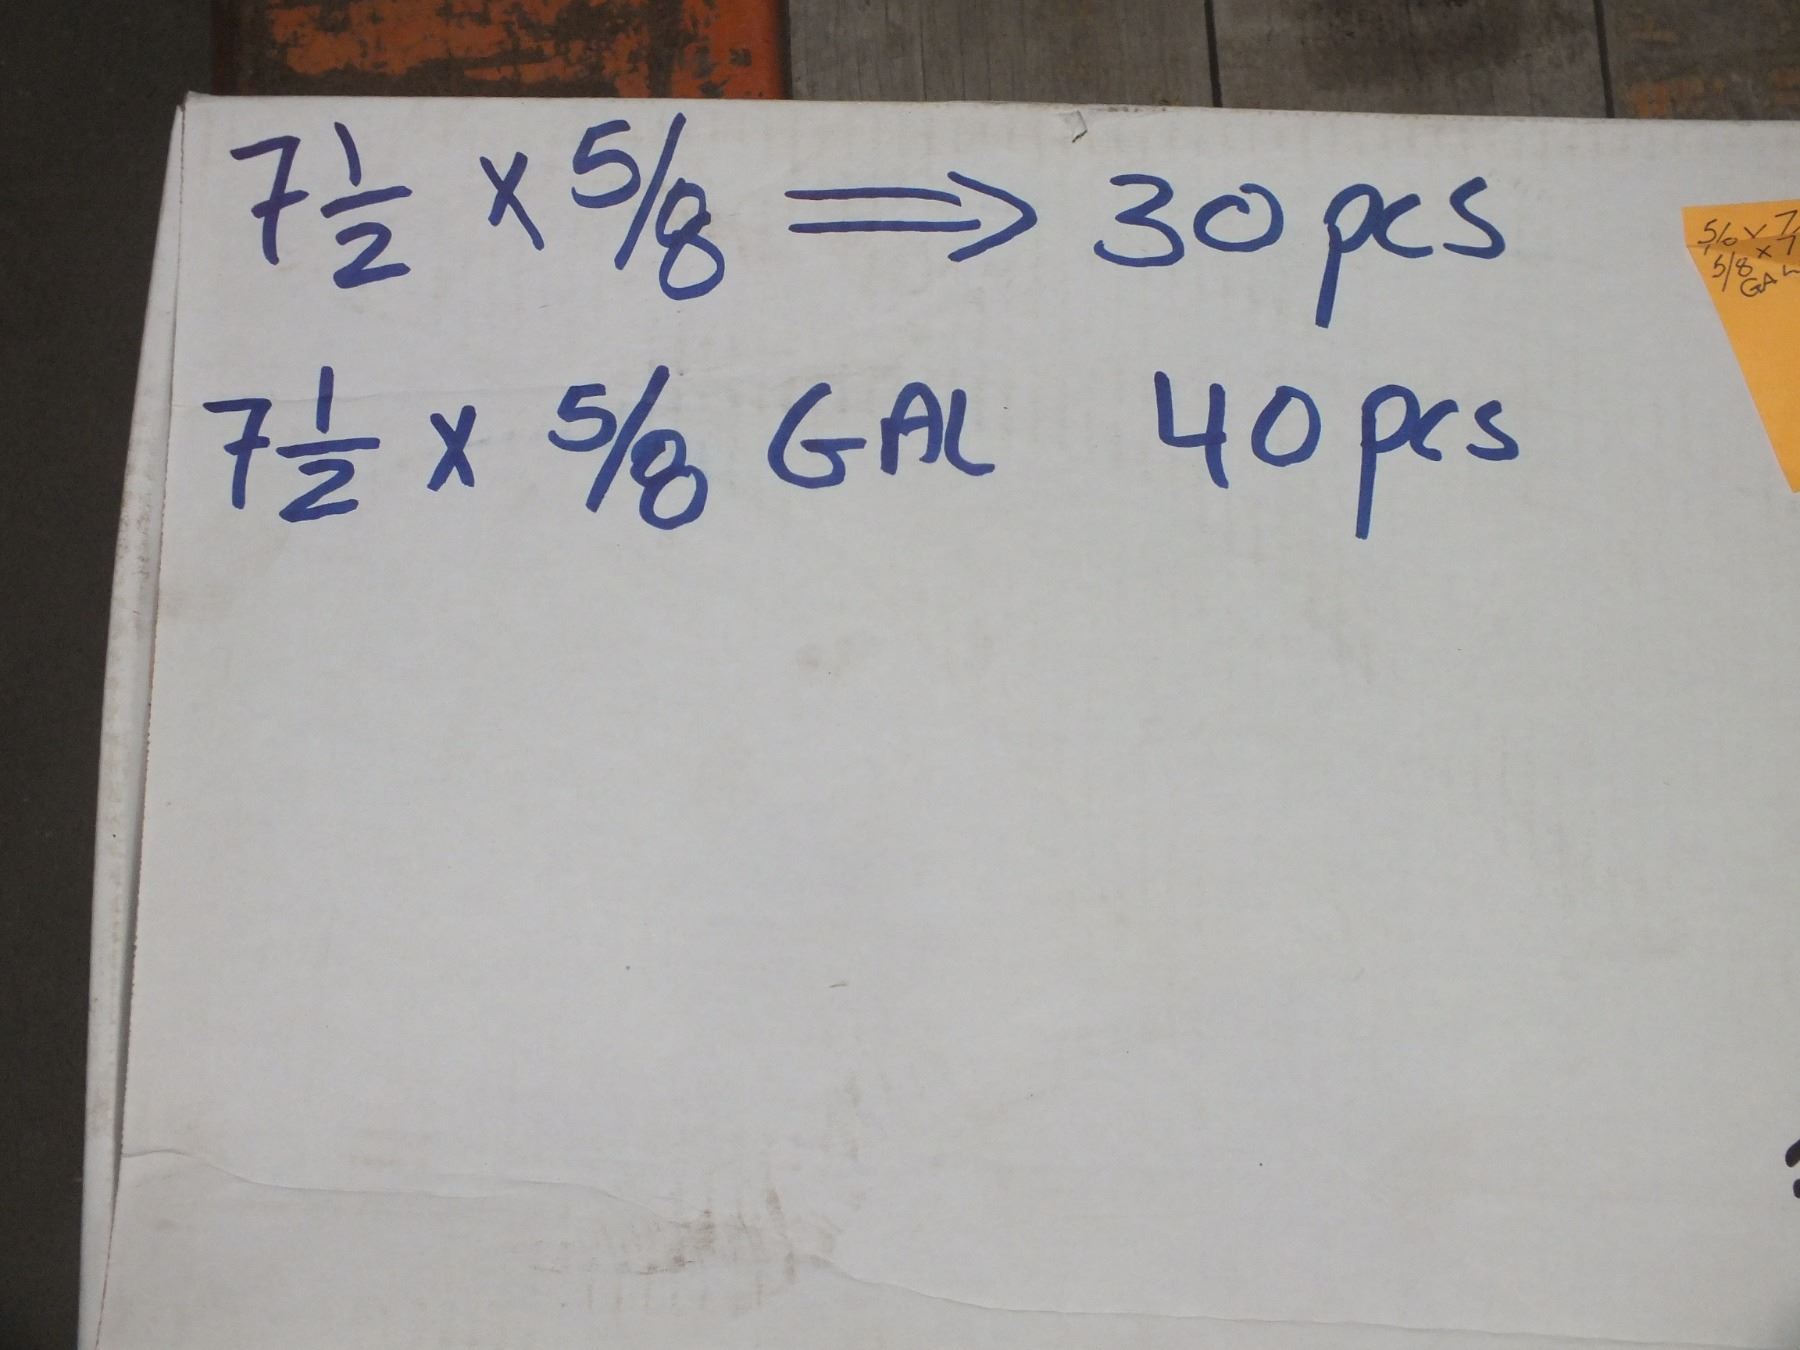 7 1/2 x 5/8 ⟹ 30 pcs
7 1/2 x 5/8 GAL 40 pcs
x 7
5/8 x 7
GAL